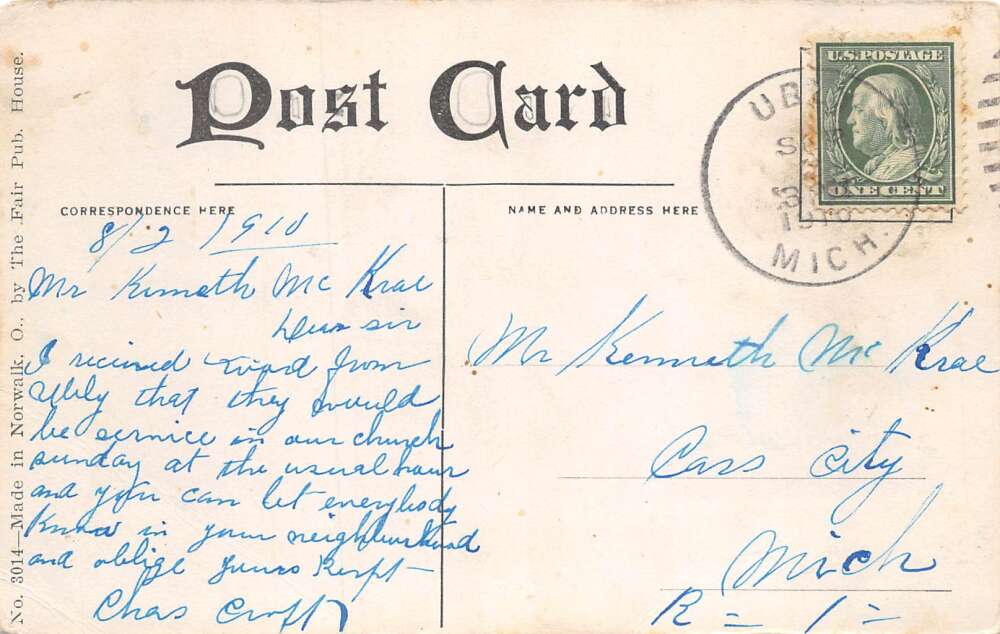 No. 3014—Made in Norwalk, O., by The Fair Pub. House.
Post Card
CORRESPONDENCE HERE
NAME AND ADDRESS HERE
U.S. POSTAGE
ONE CENT
UB
MICH.
8/2 1910
Mr Kenneth Mc Krae
Dear sir
I recived word from
Ubly that they would
be service in our church
sunday at the usual hour
and you can let everybody
know in your neighbourhood
and oblige yours Respt
Chas Croft
Mr Kenneth Mc Krae
Cass City
Mich
R = 1 =